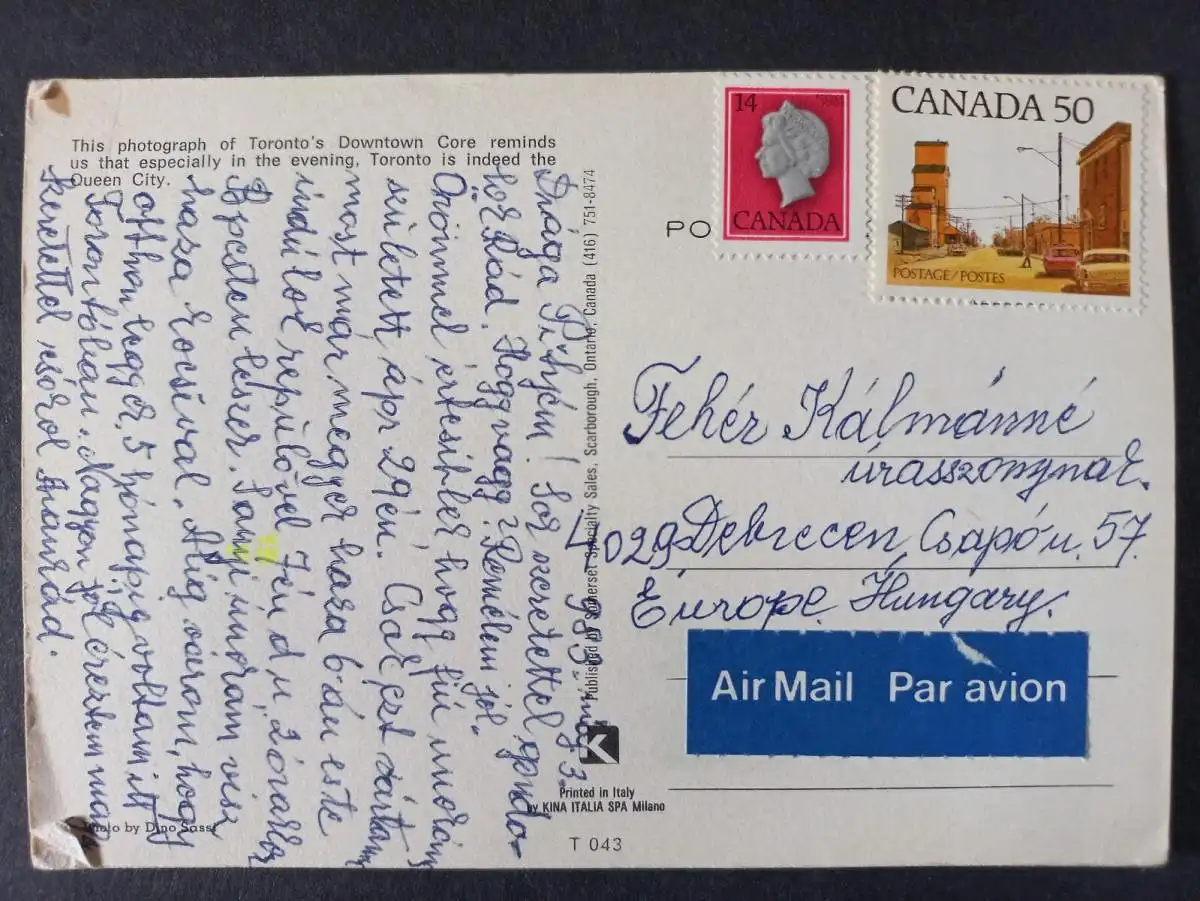 This photograph of Toronto's Downtown Core reminds
us that especially in the evening, Toronto is indeed the
Queen City.
983. máj 3.
Drága ! Sok szeretettel gondo-
lok Rád. Hogy vagy? Remélem jól.
Örömmel értesitlek hogy fiú unokám
született ápr 29én. Csak ezt vártam
most már megyek haza 6-án este
indulok repülővel 7én du 2 órakor
B.pesten leszek. Sanyi unokám visz
haza kocsival. Alig várom, hogy
otthon legyek, 5 hónapig voltam itt
Torontóban. Nagyon jól éreztem mag
Szeretettel csókol
Photo by Dino Sassi
Published by Somerset Specialty Sales, Scarborough, Ontario, Canada (416) 751-8474
K
Printed in Italy
by KINA ITALIA SPA Milano
T 043
PO
14
CANADA
CANADA 50
POSTAGE/POSTES
Fehér Kálmánné
úrasszonynak.
4029 Debrecen, Csapó u. 57.
Európe. Hungáry.
Air Mail Par avion